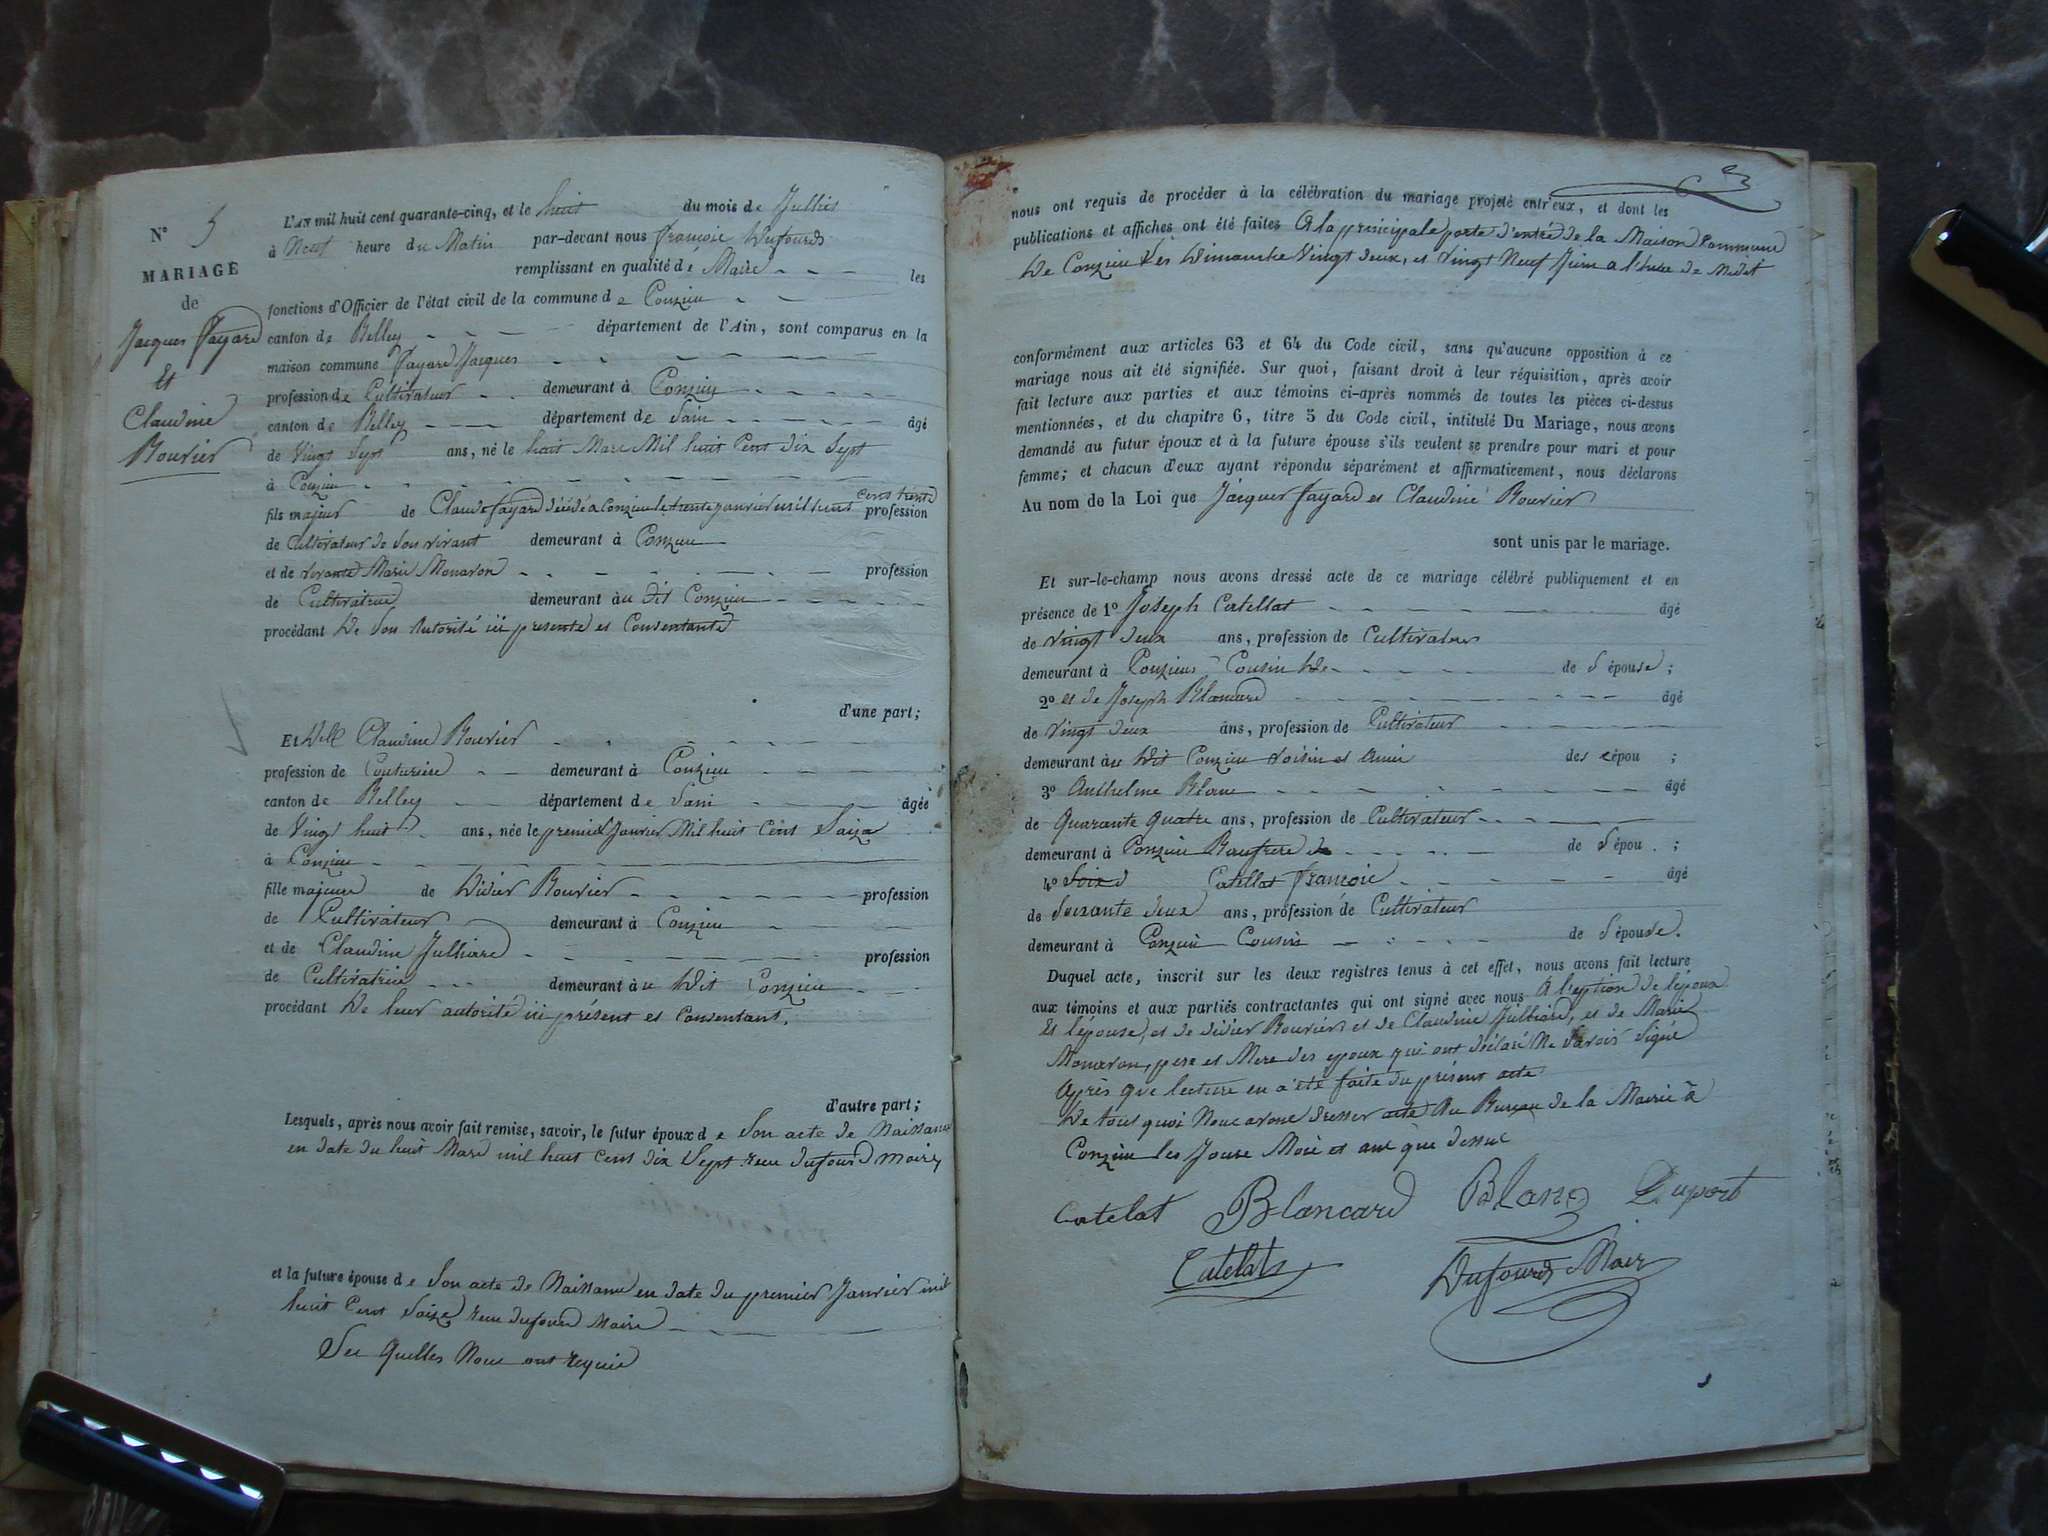 N° 5
MARIAGE
de
Jacques Fayard
Et
Claudine
Bouvier
L'AN mil huit cent quarante-cinq, et le huit du mois de Julliet
à Neuf heure du Matin par-devant nous françois Dufourd
remplissant en qualité de Maire les
fonctions d'Officier de l'état civil de la commune de Conzieu
canton de Belley département de l'Ain, sont comparus en la
maison commune Fayard Jacques
profession de Cultivateur demeurant à Conzieu
canton de Belley département de Lain âgé
de Vingt Sept ans, né le huit Mars Mil huit Cent Dix Sept
à Conzieu
fils majeur de Claude fayard décédé a Conzieu le trente janvier mil huit cent trente profession
de Cultivateur de Son vivant demeurant à Conzieu
et de vivante Marie Monavon profession
de Cultivatrice demeurant àu dit Conzieu
procédant De Son Autorité ici presente et Consentante
d'une part;
Et Delle Claudine Bouvier
profession de Couturière demeurant à Conzieu
canton de Belley département de Lain âgée
de Vingt huit ans, née le premier Janvier Mil huit Cent Saize
à Conzieu
fille majeure de Didier Bouvier profession
de Cultivateur demeurant à Conzieu
et de Claudine Julliard profession
de Cultivatrice demeurant àu Dit Conzieu
procédant De leur autorité ici présent et Consentant.
d'autre part;
Lesquels, après nous avoir fait remise, savoir, le futur époux de Son acte de Naissance
en date du huit Mars mil huit Cent dix Sept reçu dufourd maire
et la future épouse de Son acte de Naissance en date du premier Janvier mil
huit Cent Saize reçu dufourd Maire
Les Quelles Nous ont requis
nous ont requis de procéder à la célébration du mariage projeté entr'eux, et dont les
publications et affiches ont été faites A la principale porte d'entré de la Maison Commune
De Conzieu Les Dimanche Vingt deux, et Vingt Neuf Juin a l'hure de Midit
conformément aux articles 63 et 64 du Code civil, sans qu'aucune opposition à ce
mariage nous ait été signifiée. Sur quoi, faisant droit à leur réquisition, après avoir
fait lecture aux parties et aux témoins ci-après nommés de toutes les pièces ci-dessus
mentionnées, et du chapitre 6, titre 5 du Code civil, intitulé Du Mariage, nous avons
demandé au futur époux et à la future épouse s'ils veulent se prendre pour mari et pour
femme; et chacun d'eux ayant répondu séparément et affirmativement, nous déclarons
Au nom de la Loi que Jacques fayard et Claudine Bouvier
sont unis par le mariage.
Et sur-le-champ nous avons dressé acte de ce mariage célébré publiquement et en
présence de 1° Joseph Catellat âgé
de vingt deux ans, profession de Cultivateur
demeurant à Conzieu Cousin De de l'épouse;
2° et de Joseph Blancard âgé
de vingt deux ans, profession de Cultivateur
demeurant àu Dit Conzieu voisin et Amie des épou ;
3° Anthelme Blanc âgé
de Quarante quatre ans, profession de Cultivateur
demeurant à Conzieu Baufrere de de l'épou . ;
4° Catellat françois âgé
de Soixante deux ans, profession de Cultivateur
demeurant à Conzieu Cousin de l'épouse.
Duquel acte, inscrit sur les deux registres tenus à cet effet, nous avons fait lecture
aux témoins et aux parties contractantes qui ont signé avec nous A l'eption de l'époux
Et l'épouse, et de didier Bouvier et de Claudine Julliard, et de Marie
Monavon, pere et Mere des epoux qui ont déclaré Ne Savoir Signé
Après que lecture en a été faite du présent acte
De tous quoi Nous avons dresser acte Au Bureau de la Mairie à
Conzieu les Jours Mois et ans que dessus
Catelat Blancard Blanc Duport
Catelat Dufourd Maire